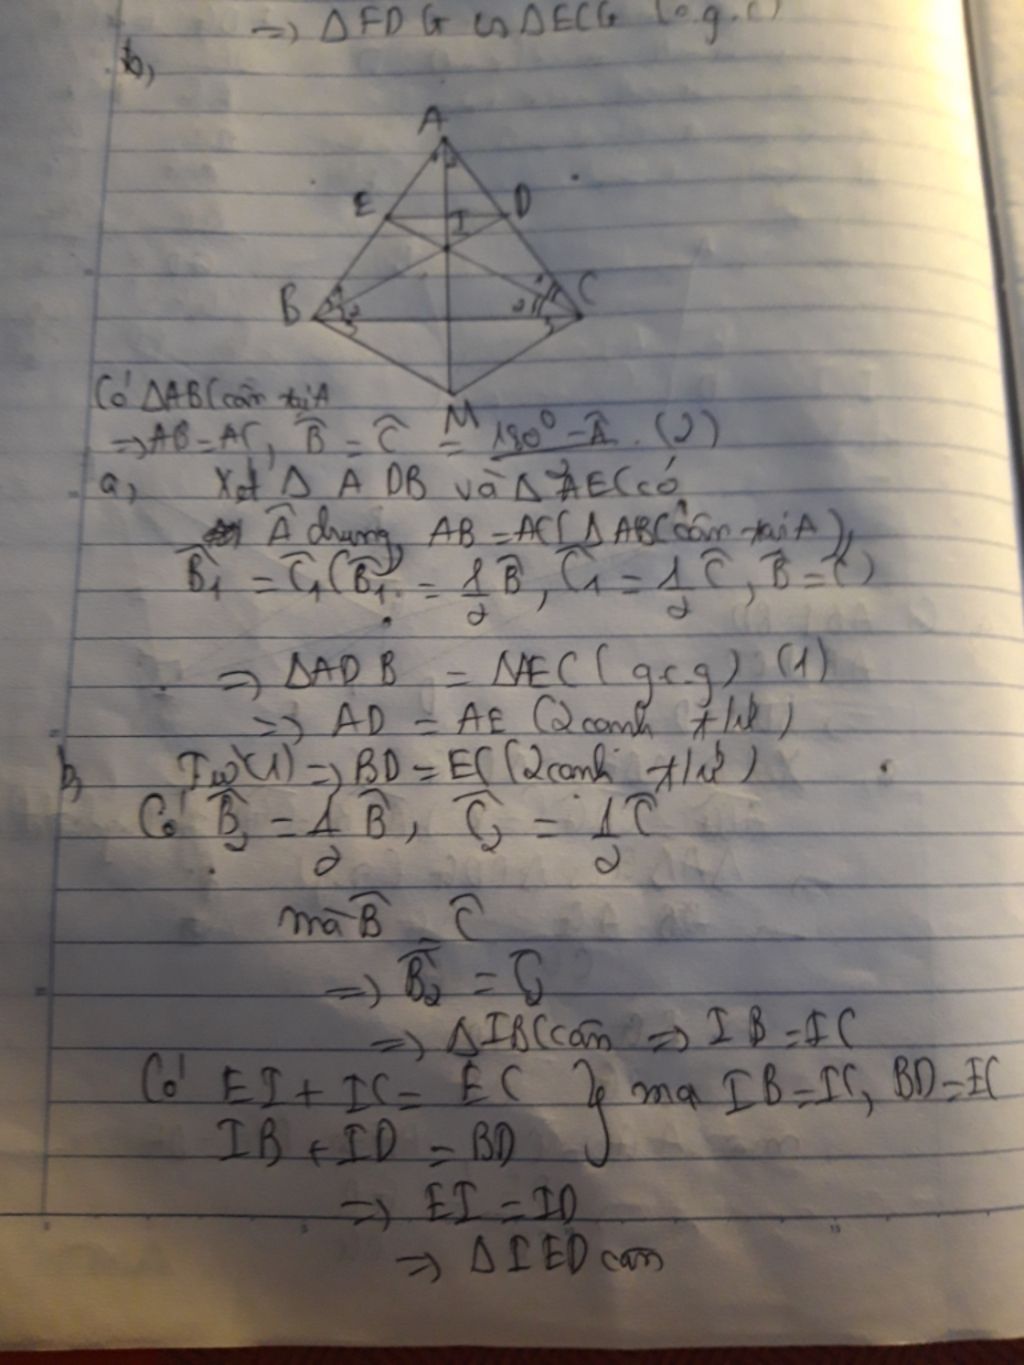 => ΔEDG = ΔECG (c.g.c)
b,
A
E D
I
B C
1 2 2 1
M
Có ΔABC cân tại A
=> AB = AC, B̂ = Ĉ = 180° - Â (2)
2
a, Xét Δ ADB và Δ AEC có
 chung, AB = AC (ΔABC cân tại A),
B̂₁ = Ĉ₁ (B̂₁ = 1/2 B̂, Ĉ₁ = 1/2 Ĉ, B̂ = Ĉ)
=> ΔADB = ΔAEC (gcg) (1)
=> AD = AE (2 cạnh t/ứ)
b, Từ (1) => BD = EC (2 cạnh t/ứ)
Có B̂₂ = 1/2 B̂, Ĉ₂ = 1/2 Ĉ
mà B̂ = Ĉ
=> B̂₂ = Ĉ₂
=> ΔIBC cân => IB = IC
Có EI + IC = EC } mà IB = IC, BD = EC
IB + ID = BD
=> EI = ID
=> ΔIED cân